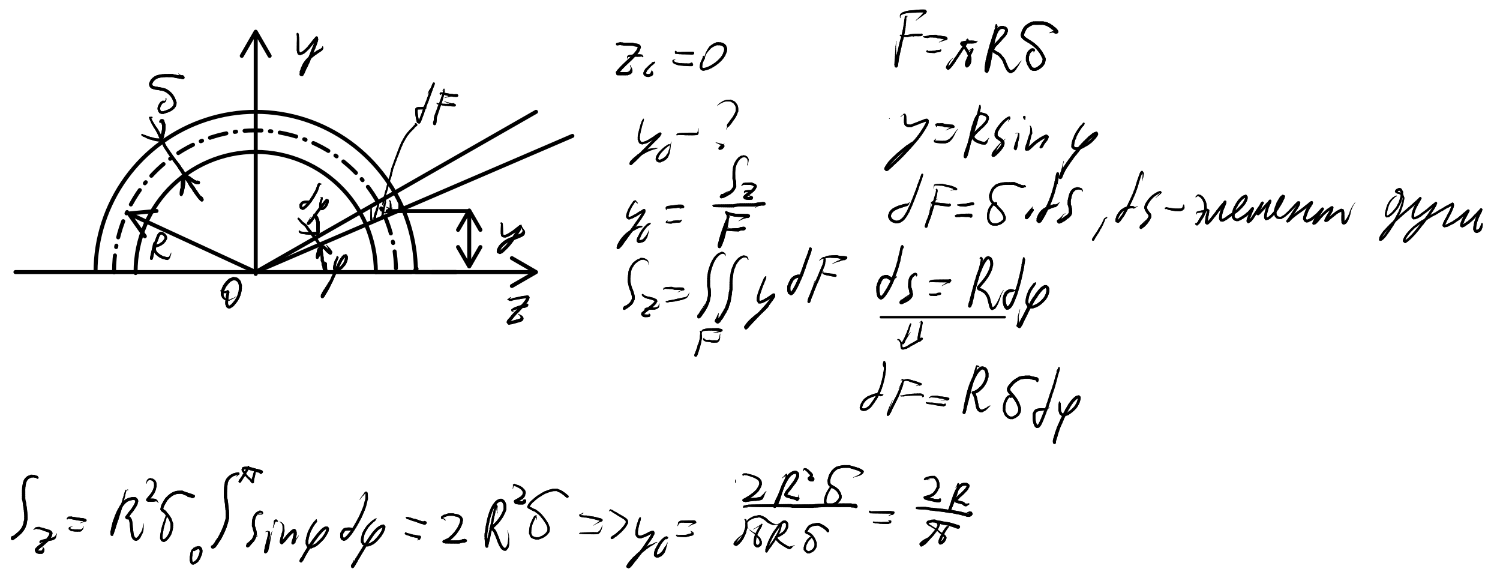 y
δ
dF
dφ
R
y
φ
0
z
z₀ = 0
y₀ - ?
y₀ = S_z / F
S_z = ∬_F y dF
F = πRδ
y = R sin φ
dF = δ·ds, ds - элемент дуги
ds = Rdφ
⇓
dF = Rδdφ
S_z = R²δ ₀∫^π sinφ dφ = 2R²δ => y₀ = 2R²δ / πRδ = 2R / π